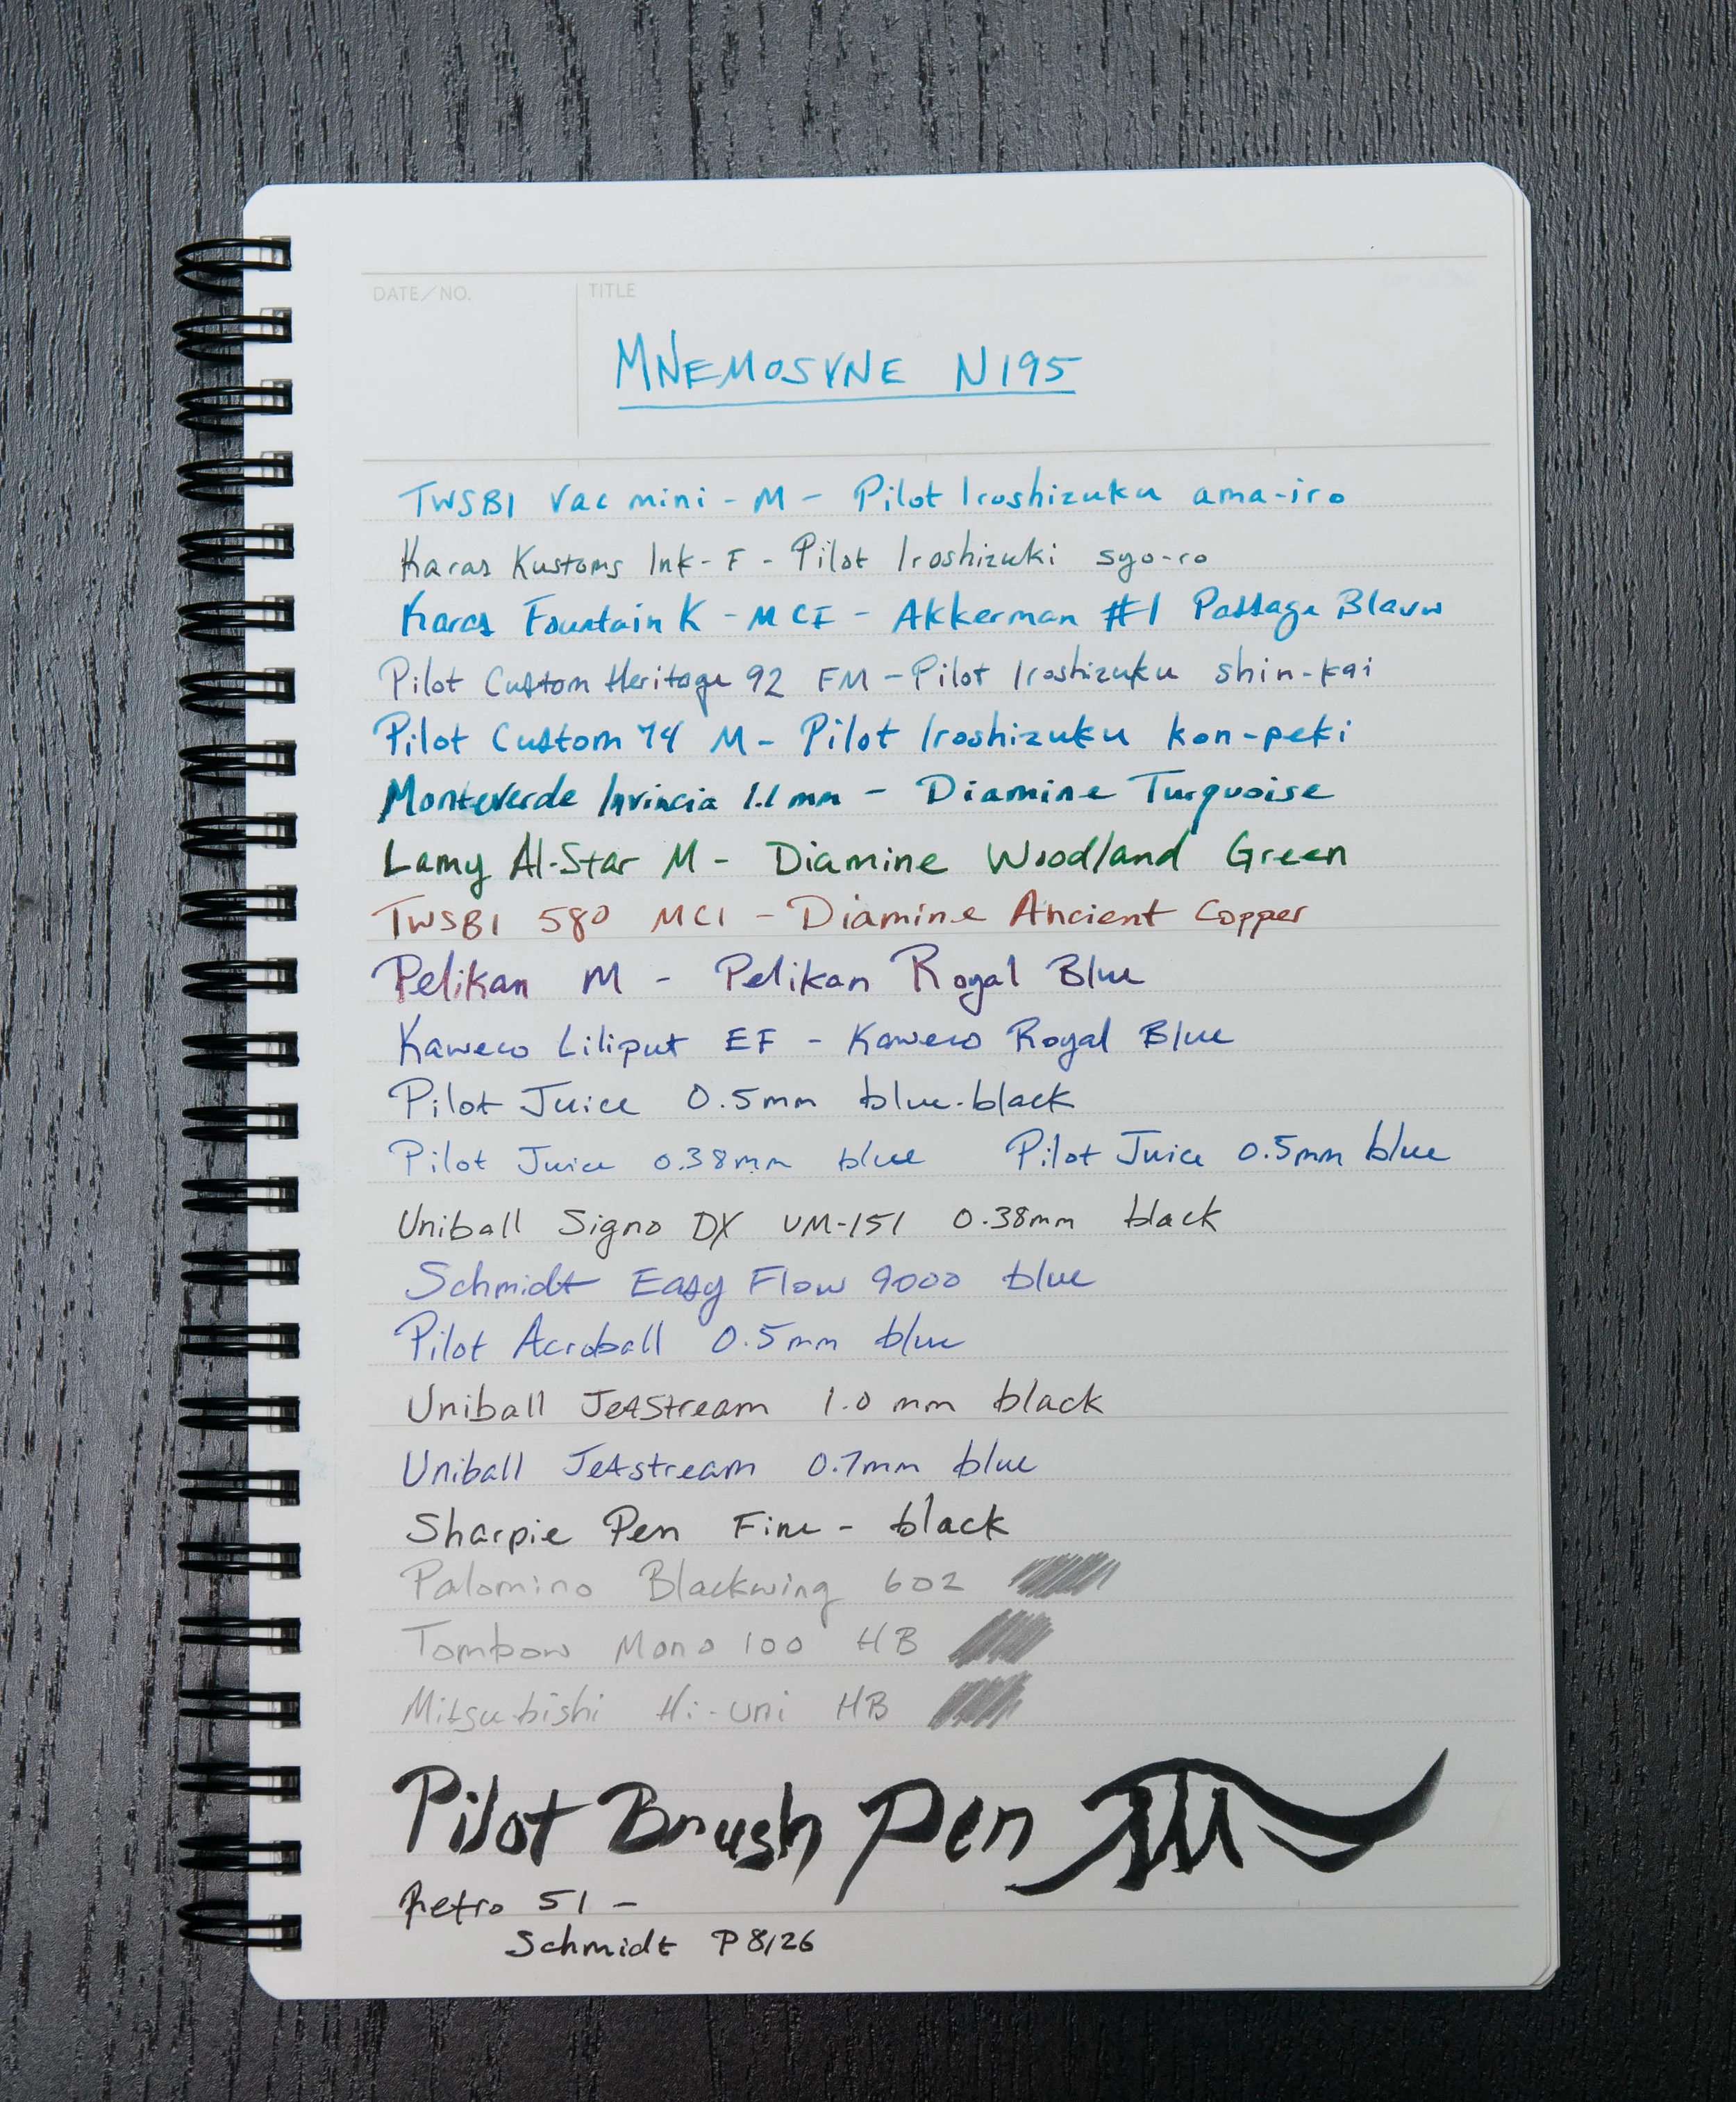 DATE/NO.
TITLE
MNEMOSYNE N195
TWSBI Vac mini - M - Pilot Iroshizuku ama-iro
Karas Kustoms Ink - F - Pilot Iroshizuki syo-ro
Karas Fountain K - MCI - Akkerman #1 Passage Blauw
Pilot Custom Heritage 92 FM - Pilot Iroshizuku shin-kai
Pilot Custom 74 M - Pilot Iroshizuku kon-peki
Monteverde Invincia 1.1 mm - Diamine Turquoise
Lamy Al-Star M - Diamine Woodland Green
TWSBI 580 MCI - Diamine Ancient Copper
Pelikan M - Pelikan Royal Blue
Kaweco Liliput EF - Kaweco Royal Blue
Pilot Juice 0.5mm blue-black
Pilot Juice 0.38mm blue Pilot Juice 0.5mm blue
Uniball Signo DX UM-151 0.38mm black
Schmidt Easy Flow 9000 blue
Pilot Acroball 0.5mm blue
Uniball JetStream 1.0 mm black
Uniball Jetstream 0.7mm blue
Sharpie Pen Fine - black
Palomino Blackwing 602
Tombow Mono 100 HB
Mitsubishi Hi-uni HB
Pilot Brush Pen
Retro 51 -
Schmidt P8126